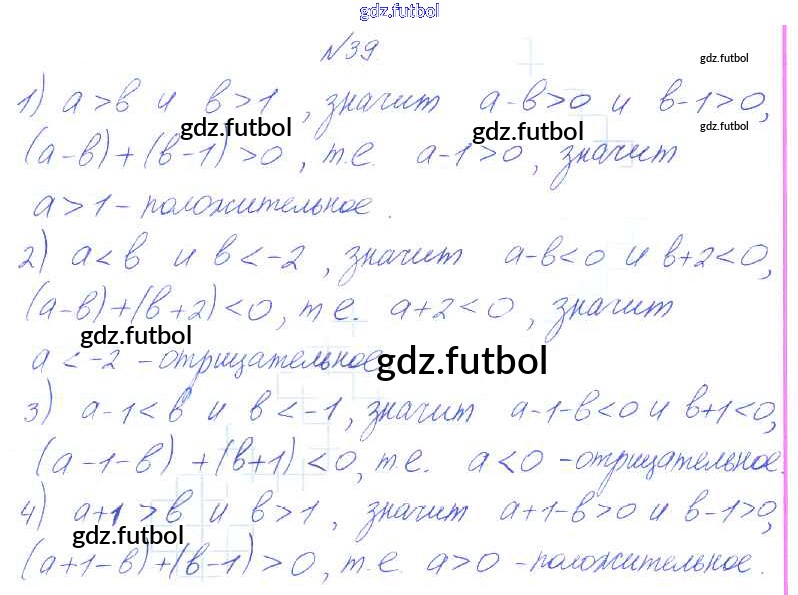 gdz.futbol
№39
gdz.futbol
1) a>b и b>1, значит a-b>0 и b-1>0,
gdz.futbol gdz.futbol gdz.futbol
(a-b)+(b-1)>0, т.е. a-1>0, значит
a>1 - положительное.
2) a<b и b<-2, значит a-b<0 и b+2<0,
(a-b)+(b+2)<0, т.е. a+2<0, значит
gdz.futbol
a<-2 - отрицательное
gdz.futbol
3) a-1<b и b<-1, значит a-1-b<0 и b+1<0,
(a-1-b)+(b+1)<0, т.е. a<0 - отрицательное.
4) a+1>b и b>1, значит a+1-b>0 и b-1>0,
gdz.futbol
(a+1-b)+(b-1)>0, т.е. a>0 - положительное.